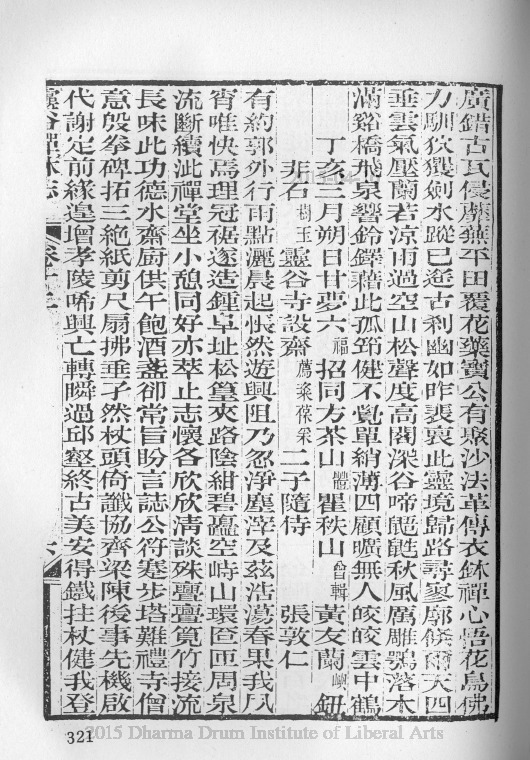 廣錯古瓦侵蘼蕪平田覆花藥寶公有聚沙法華傳衣鉢禪心悟花鳥佛
力馴狄玃劍水蹤已逝古刹幽如昨裴裒此靈境歸路尋寥廓倏爾天四
垂雲氣壓蘭若涼雨過空山松聲度高閣深谷啼鼯鼪秋風厲雕鶚落木
滿谿橋飛泉響鈴鐸藉此孤筇健不覺單綃薄四顧曠無人皎皎雲中鶴
丁亥三月朔日甘夢六福招同方茶山體瞿秩山曾輯黃友蘭嶼鈕
非石樹玉靈谷寺設齋薦粢葆采二子隨侍 張敦仁
有約郭外行雨點灑晨起悵然遊興阻乃忽淨塵滓及茲浩蕩春果我夙
宵唯快焉理冠裾遂造鍾阜址松篁夾路陰紺碧矗空峙山環匼匝周泉
流斷續泚禪堂坐小憩同好亦萃止志懷各欣欣清談殊亹亹筧竹接流
長味此功德水齋廚供午飽酒盞卻常旨盼言誌公符蹇步塔難禮寺僧
意殷拳碑拓三絕紙剪尺扇拂垂孑然杖頭倚讖協齊梁陳後事先機啟
代謝定前緣遑增孝陵唏興亡轉瞬過邱壑終古美安得鐵拄杖健我登
靈谷禪林志 六
321
2015 Dharma Drum Institute of Liberal Arts